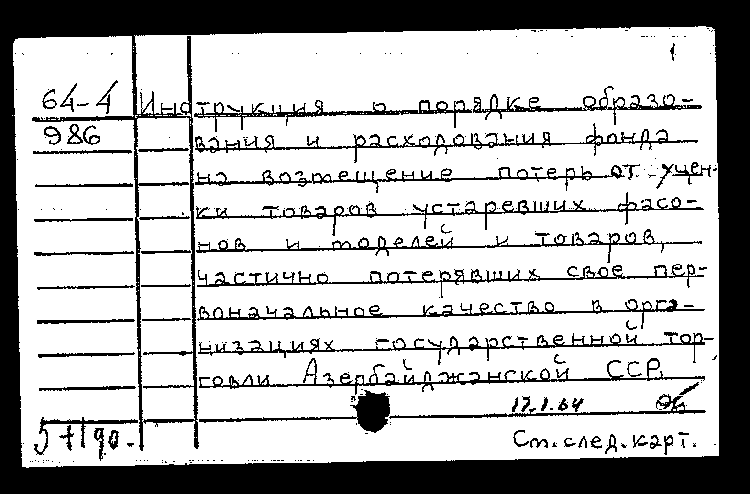 1
64-4 Инструкция о порядке образо-
986 вания и расходования фонда
на возмещение потерь от уцен-
ки товаров устаревших фасо-
нов и моделей и товаров,
частично потерявших свое пер-
воначальное качество в орга-
низациях государственной тор-
говли Азербайджанской ССР.
17.1.64
См. след. карт.